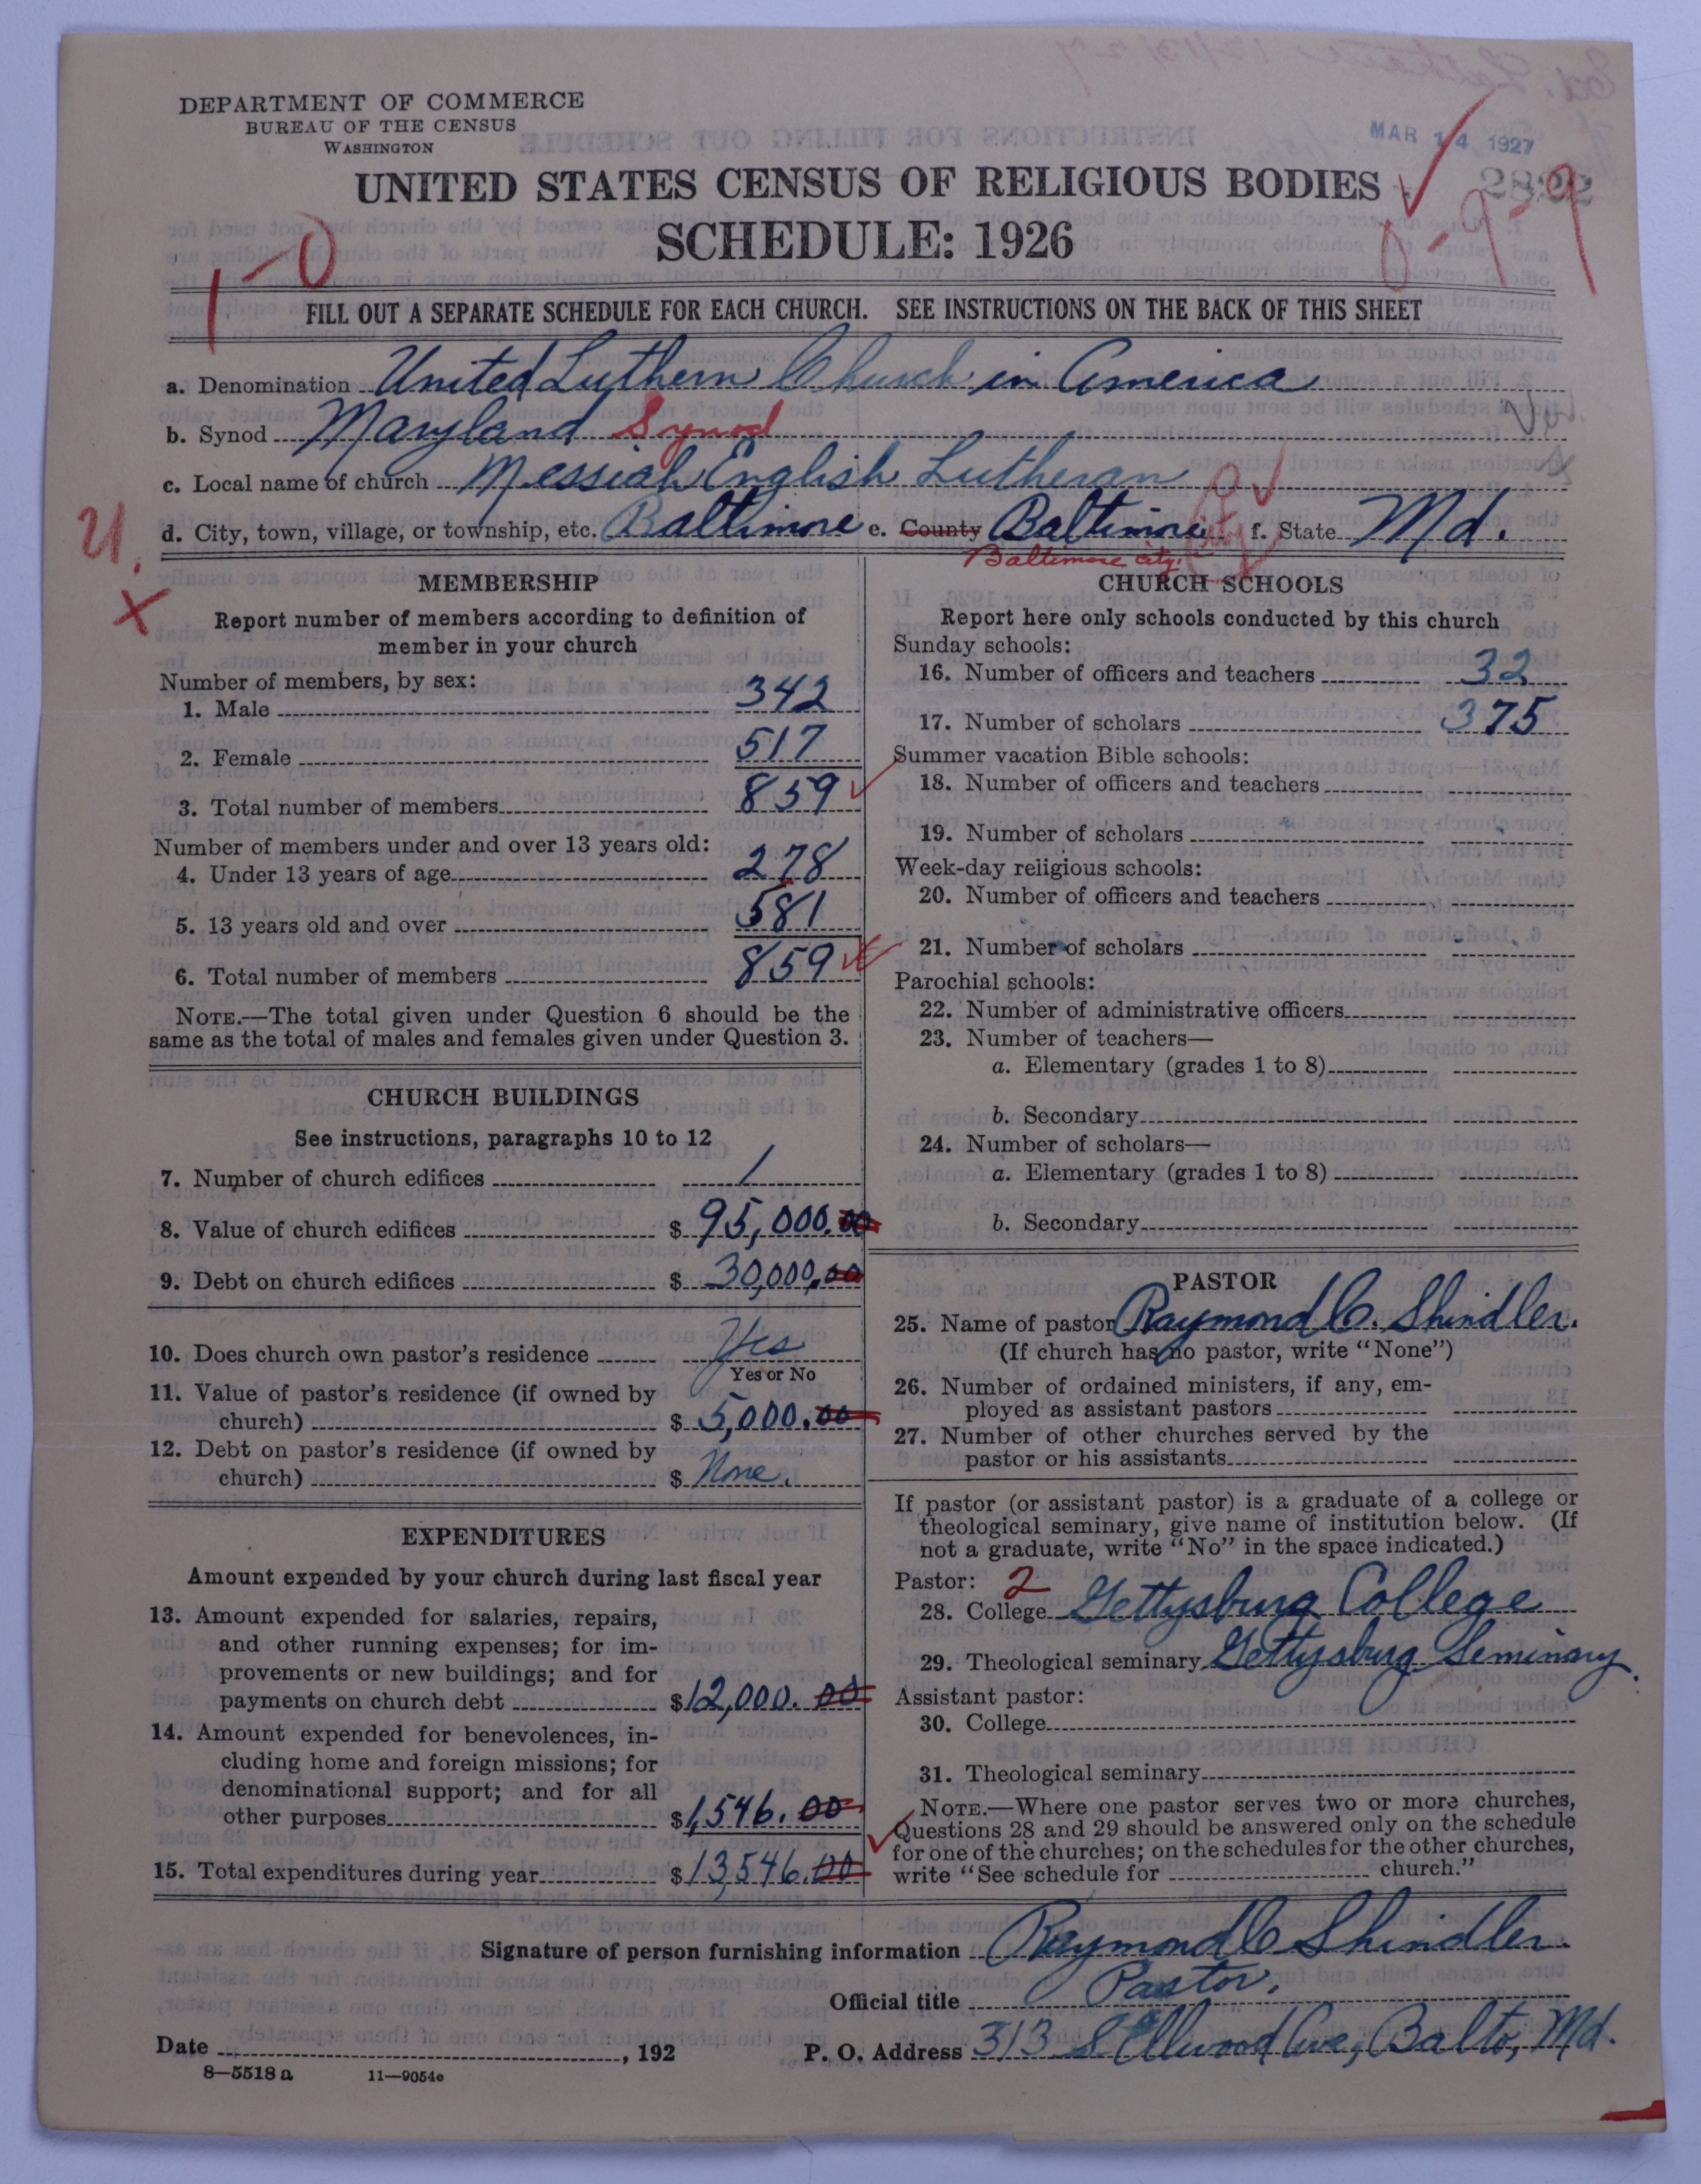 DEPARTMENT OF COMMERCE
BUREAU OF THE CENSUS
WASHINGTON
MAR 14 1927
UNITED STATES CENSUS OF RELIGIOUS BODIES
SCHEDULE: 1926
1-0
FILL OUT A SEPARATE SCHEDULE FOR EACH CHURCH. SEE INSTRUCTIONS ON THE BACK OF THIS SHEET
a. Denomination United Luthern Church in America
b. Synod Maryland Synod
c. Local name of church Messiah English Lutheran
d. City, town, village, or township, etc. Baltimore e. County Baltimore City f. State Md.
Baltimore city.
U.
X
MEMBERSHIP
Report number of members according to definition of
member in your church
Number of members, by sex:
1. Male 342
2. Female 517
3. Total number of members 859
Number of members under and over 13 years old:
4. Under 13 years of age 278
5. 13 years old and over 581
6. Total number of members 859
NOTE.—The total given under Question 6 should be the
same as the total of males and females given under Question 3.
CHURCH BUILDINGS
See instructions, paragraphs 10 to 12
7. Number of church edifices 1
8. Value of church edifices $ 95,000.00
9. Debt on church edifices $ 30,000.00
10. Does church own pastor's residence Yes
Yes or No
11. Value of pastor's residence (if owned by
church) $ 5,000.00
12. Debt on pastor's residence (if owned by
church) $ None.
EXPENDITURES
Amount expended by your church during last fiscal year
13. Amount expended for salaries, repairs,
and other running expenses; for im-
provements or new buildings; and for
payments on church debt $ 12,000.00
14. Amount expended for benevolences, in-
cluding home and foreign missions; for
denominational support; and for all
other purposes $ 1,546.00
15. Total expenditures during year $ 13,546.00
CHURCH SCHOOLS
Report here only schools conducted by this church
Sunday schools:
16. Number of officers and teachers 32
17. Number of scholars 375
Summer vacation Bible schools:
18. Number of officers and teachers
19. Number of scholars
Week-day religious schools:
20. Number of officers and teachers
21. Number of scholars
Parochial schools:
22. Number of administrative officers
23. Number of teachers—
a. Elementary (grades 1 to 8)
b. Secondary
24. Number of scholars—
a. Elementary (grades 1 to 8)
b. Secondary
PASTOR
25. Name of pastor Raymond C. Shindler.
(If church has no pastor, write "None")
26. Number of ordained ministers, if any, em-
ployed as assistant pastors
27. Number of other churches served by the
pastor or his assistants
If pastor (or assistant pastor) is a graduate of a college or
theological seminary, give name of institution below. (If
not a graduate, write "No" in the space indicated.)
Pastor: 2
28. College Gettysburg College
29. Theological seminary Gettysburg Seminary.
Assistant pastor:
30. College
31. Theological seminary
NOTE.—Where one pastor serves two or more churches,
Questions 28 and 29 should be answered only on the schedule
for one of the churches; on the schedules for the other churches,
write "See schedule for church."
Signature of person furnishing information Raymond C Shindler.
Official title Pastor.
Date , 192
P. O. Address 313 S Ellwood Ave, Balto, Md.
8—5518 a 11—9054e